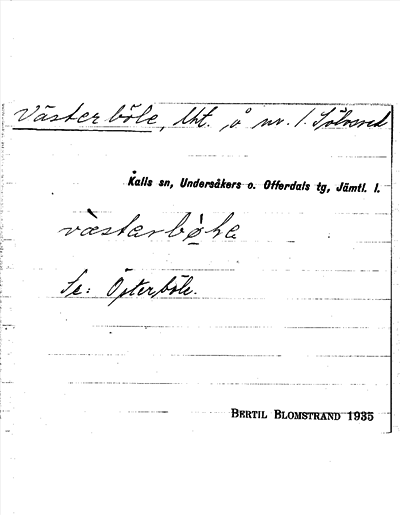 Västerböle, lht. å nr. 1 Sölvsved
Kalls sn, Undersåkers o. Offerdals tg, Jämtl. l.
Se: Österböle.
BERTIL BLOMSTRAND 1935